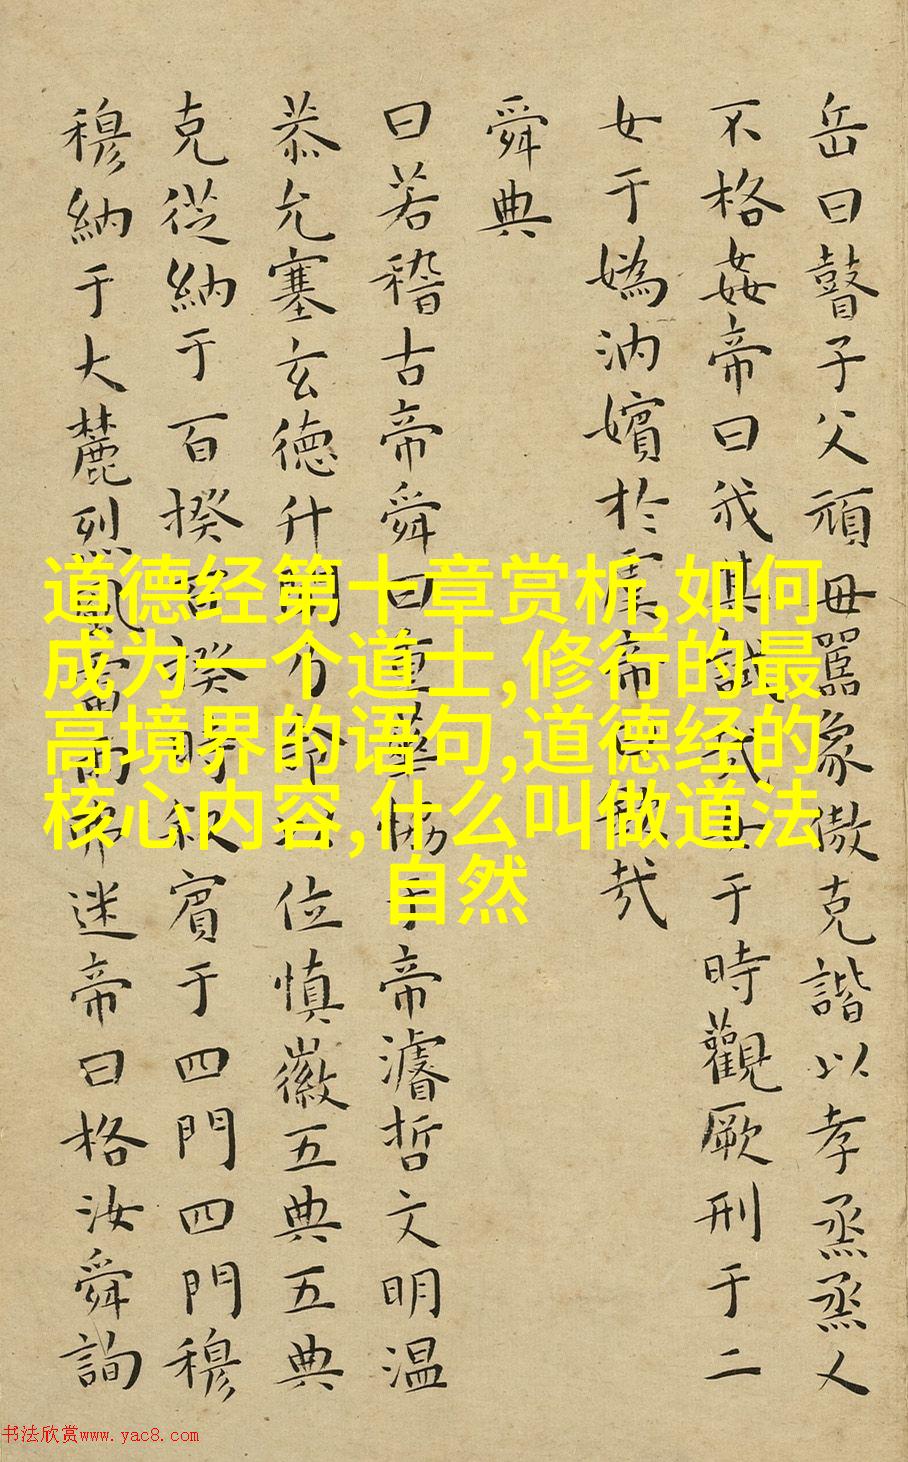 岳曰瞽子父頑母嚚象傲克諧以孝烝烝乂
不格姦帝曰我其試哉女于時觀厥刑于二
女于媯汭嬪於虞帝曰欽哉
舜典
曰若稽古帝舜曰重華恊于帝濬哲文明温
恭允塞玄德升聞乃命以位慎徽五典五典
克從納于百揆百揆時叙賓于四門四門穆
穆納于大麓烈風雷雨弗迷帝曰格汝舜詢
道德经第十章赏析,如何
成为一个道士,修行的最
高境界的语句,道德经的
核心内容,什么叫做道法
自然
书法欣赏www.yac8.com